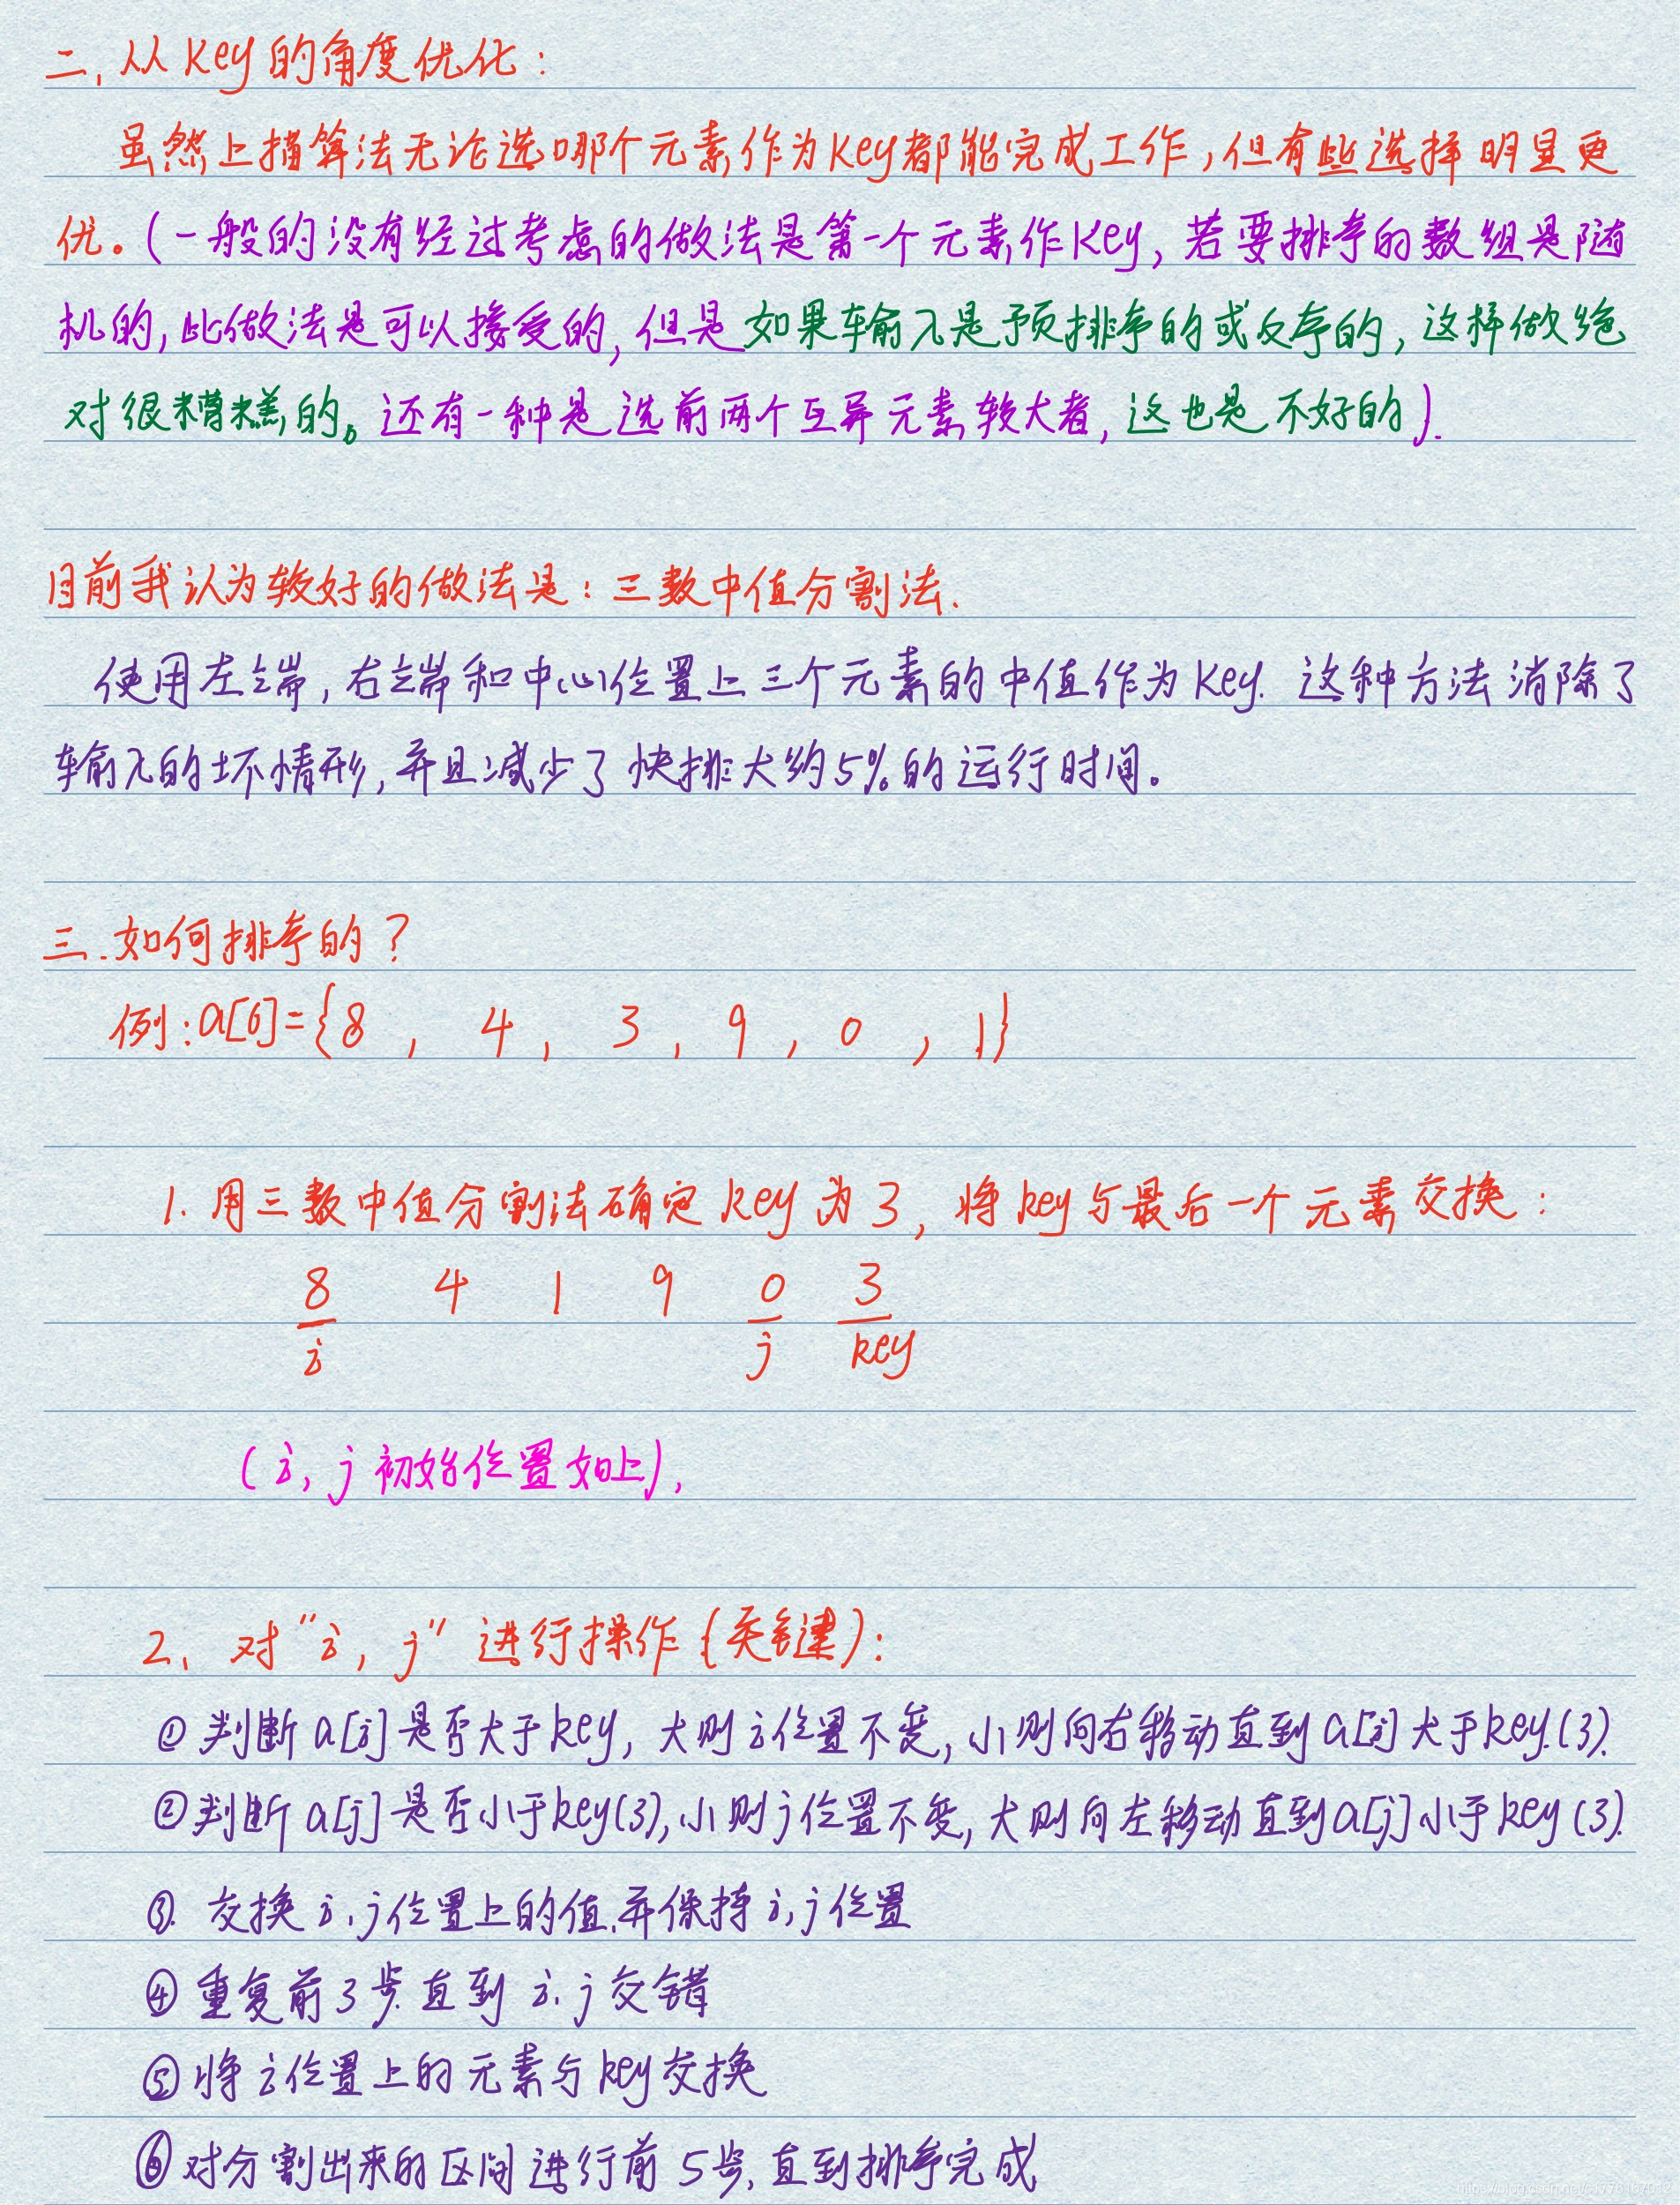 二、从key的角度优化：
虽然上描算法无论选哪个元素作为key都能完成工作，但有些选择明显更
优。(一般的没有经过考虑的做法是第一个元素作key，若要排序的数组是随
机的，此做法是可以接受的，但是如果输入是预排序的或反序的，这样做绝
对很糟糕的。还有一种是选前两个互异元素较大者，这也是不好的).
目前我认为较好的做法是：三数中值分割法.
使用左端，右端和中心位置上三个元素的中值作为key. 这种方法消除了
输入的坏情形，并且减少了快排大约5%的运行时间。
三.如何排序的？
例：a[6]={8 , 4 , 3 , 9 , 0 , 1}
1. 用三数中值分割法确定key为3，将key与最后一个元素交换：
8 4 1 9 0 3
i j key
(i, j初始位置如上),
2、对"i, j"进行操作(关键)：
①判断a[i]是否大于key，大则i位置不变，小则向右移动直到a[i]大于key.(3).
②判断a[j]是否小于key(3),小则j位置不变，大则向左移动直到a[j]小于key(3).
③. 交换i、j位置上的值.并保持i,j位置
④重复前3步直到i、j交错
⑤将i位置上的元素与key交换
⑥对分割出来的区间进行前5步，直到排序完成